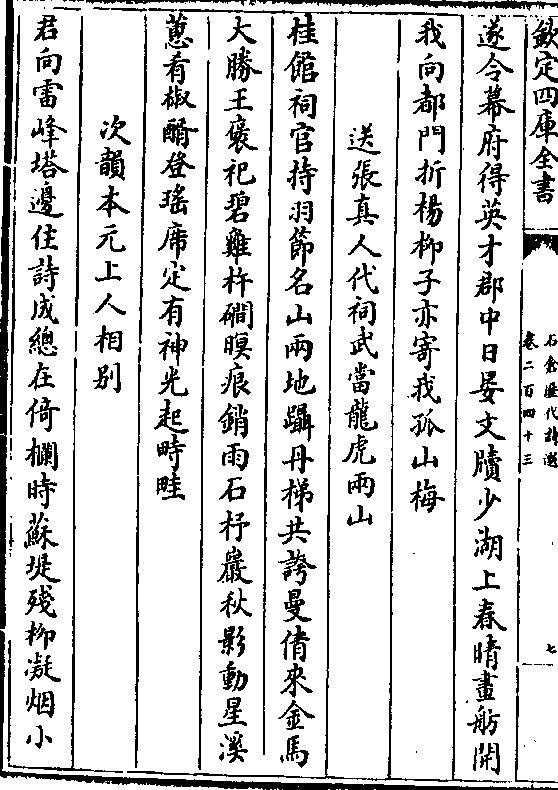 欽定四庫全書
石倉歷代詩選
卷二百四十三
七
遂令幕府得英才郡中日晏文牘少湖上春晴畫舫開
我向都門折楊柳子亦寄我孤山梅
送張真人代祠武當龍虎兩山
桂館祠官持羽節名山兩地躡丹梯共誇曼倩來金馬
大勝王褒祀碧雞杵磵暝痕銷雨石杼巖秋影動星溪
蕙肴椒醑登瑤席定有神光起畤畦
次韻本元上人相别
君向雷峰塔邊住詩成總在倚欄時蘇堤殘柳凝烟小